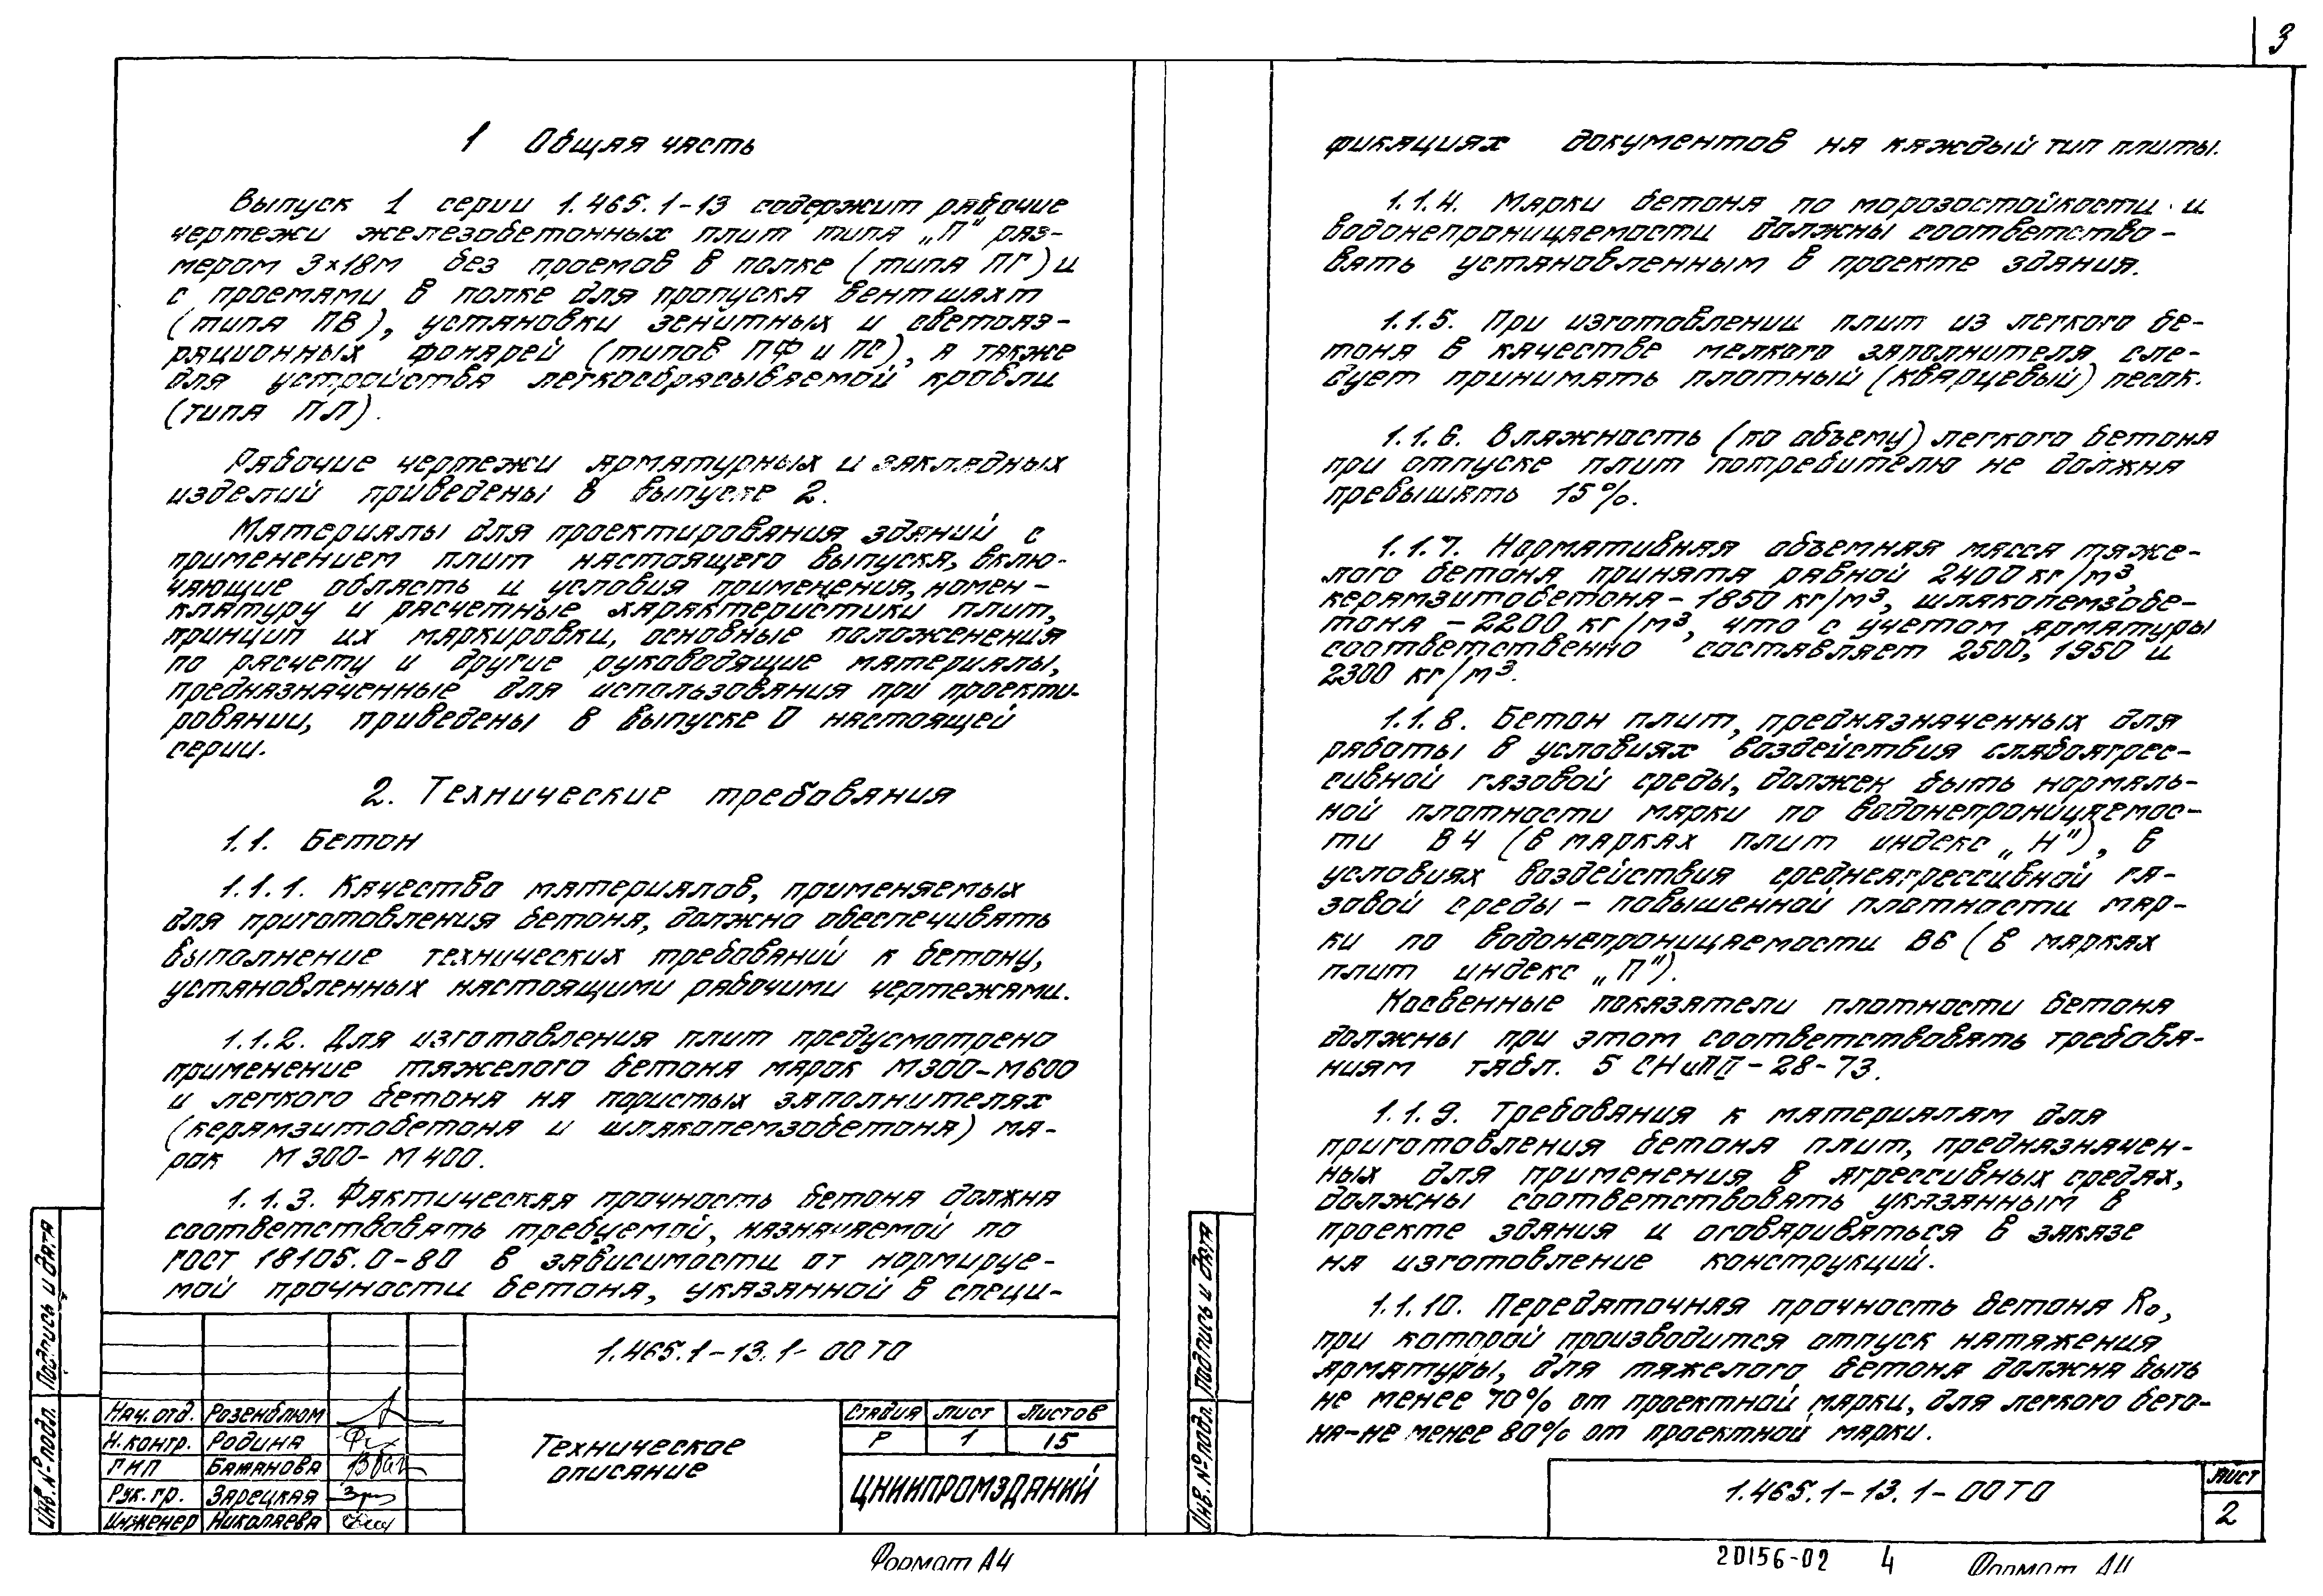 3
1 Общая часть
Выпуск 1 серии 1.465.1-13 содержит рабочие
чертежи железобетонных плит типа „П" раз-
мером 3×18м без проемов в полке (типа ПГ) и
с проемами в полке для пропуска вентшахт
(типа ПВ), установки зенитных и светоаэ-
рационных фонарей (типов ПФ и ПС), а также
для устройства легкосбрасываемой кровли
(типа ПЛ).
Рабочие чертежи арматурных и закладных
изделий приведены в выпуске 2.
Материалы для проектирования зданий с
применением плит настоящего выпуска, вклю-
чающие область и условия применения, номен-
клатуру и расчетные характеристики плит,
принцип их маркировки, основные положенения
по расчету и другие руководящие материалы,
предназначенные для использования при проекти-
ровании, приведены в выпуске 0 настоящей
серии.
2. Технические требования
1.1. Бетон
1.1.1. Качество материалов, применяемых
для приготовления бетона, должно обеспечивать
выполнение технических требований к бетону,
установленных настоящими рабочими чертежами.
1.1.2. Для изготовления плит предусмотрено
применение тяжелого бетона марок М300-М600
и легкого бетона на пористых заполнителях
(керамзитобетона и шлакопемзобетона) ма-
рок М300-М400.
1.1.3. Фактическая прочность бетона должна
соответствовать требуемой, назначаемой по
ГОСТ 18105.0-80 в зависимости от нормируе-
мой прочности бетона, указанной в специ-
1.465.1-13.1-00ТО
Нач. отд. Розенблюм
Н. контр. Родина
ГИП Бажанова
Рук. гр. Зарецкая
Инженер Николаева
Техническое
описание
Стадия Лист Листов
Р 1 15
ЦНИИПРОМЗДАНИЙ
Инв. № подл. Подпись и дата
Формат А4
фикациях документов на каждый тип плиты.
1.1.4. Марки бетона по морозостойкости и
водонепроницаемости должны соответство-
вать установленным в проекте здания.
1.1.5. При изготовлении плит из легкого бе-
тона в качестве мелкого заполнителя сле-
дует принимать плотный (кварцевый) песок.
1.1.6. Влажность (по объему) легкого бетона
при отпуске плит потребителю не должна
превышать 15%.
1.1.7. Нормативная объемная масса тяже-
лого бетона принята равной 2400 кг/м³,
керамзитобетона - 1850 кг/м³, шлакопемзобе-
тона - 2200 кг/м³, что с учетом арматуры
соответственно составляет 2500, 1950 и
2300 кг/м³.
1.1.8. Бетон плит, предназначенных для
работы в условиях воздействия слабоагрес-
сивной газовой среды, должен быть нормаль-
ной плотности марки по водонепроницаемос-
ти В4 (в марках плит индекс „Н"), в
условиях воздействия среднеагрессивной га-
зовой среды - повышенной плотности мар-
ки по водонепроницаемости В6 (в марках
плит индекс „П").
Косвенные показатели плотности бетона
должны при этом соответствовать требова-
ниям табл. 5 СНиП II-28-73.
1.1.9. Требования к материалам для
приготовления бетона плит, предназначен-
ных для применения в агрессивных средах,
должны соответствовать указанным в
проекте здания и оговариваться в заказе
на изготовление конструкций.
1.1.10. Передаточная прочность бетона R₀,
при которой производится отпуск натяжения
арматуры, для тяжелого бетона должна быть
не менее 70% от проектной марки, для легкого бето-
на-не менее 80% от проектной марки.
Инв. № подл. Подпись и дата
1.465.1-13.1-00ТО
Лист
2
20156-02 4
Формат А4